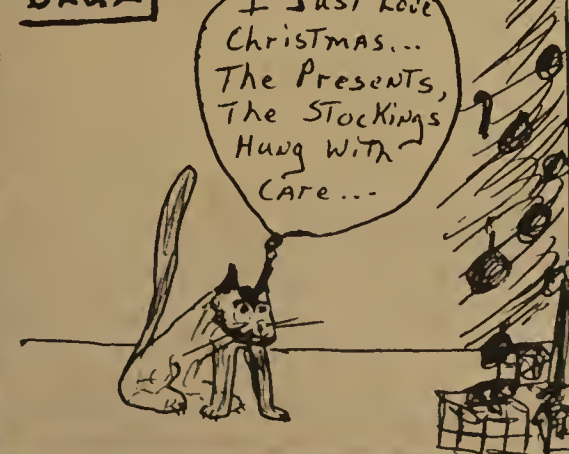 I Just Love
Christmas...
The Presents,
The Stockings
Hung With
Care...